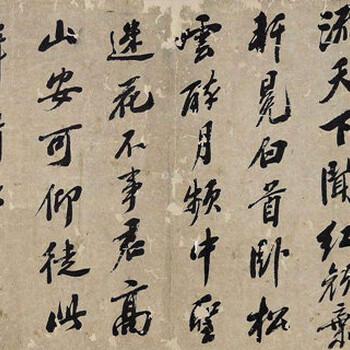 流天下聞紅顏棄
軒冕白首臥松
雲醉月頻中聖
迷花不事君高
山安可仰徒此